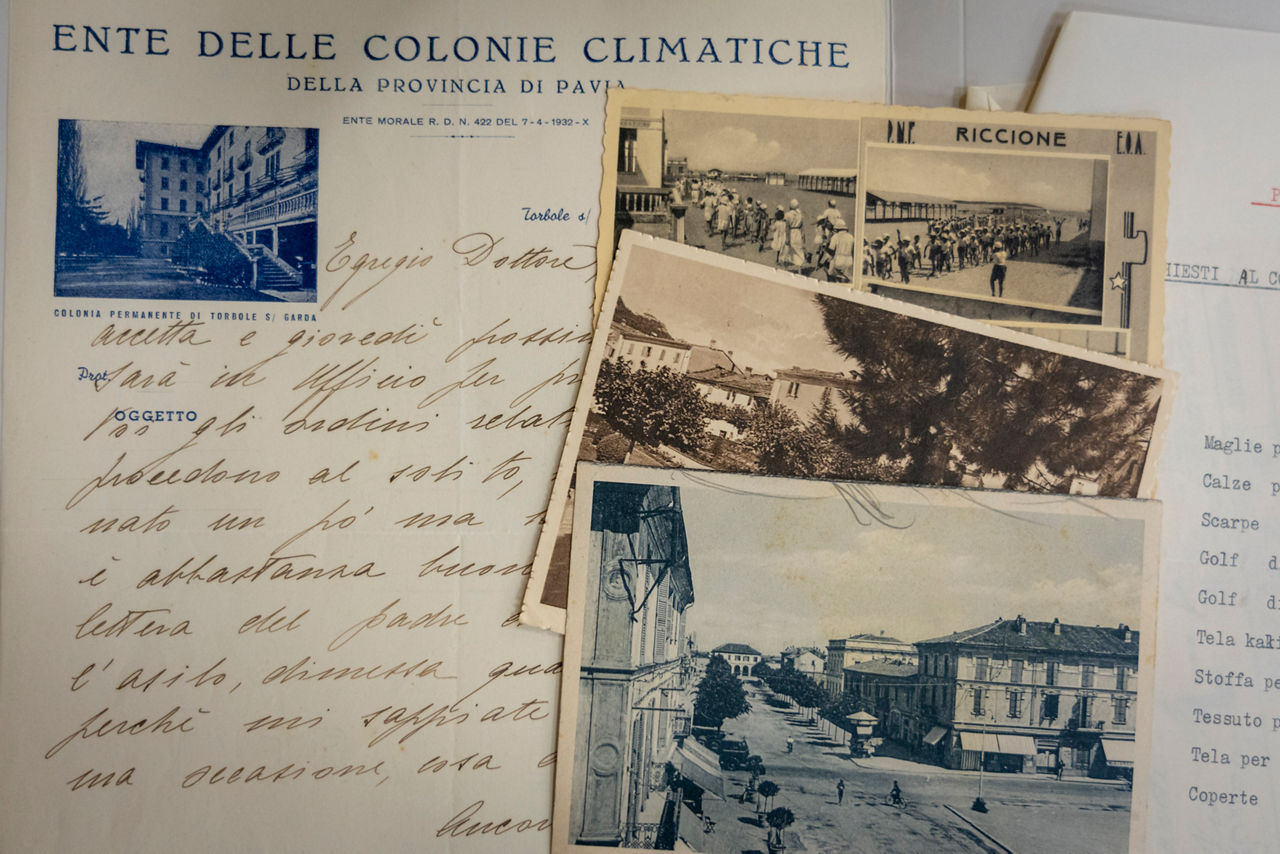 ENTE DELLE COLONIE CLIMATICHE
DELLA PROVINCIA DI PAVIA
ENTE MORALE R. D. N. 422 DEL 7-4-1932-X
Torbole s/
COLONIA PERMANENTE DI TORBOLE S/ GARDA
Prot.
OGGETTO
Egregio Dottore,
accetta e giovedì prossi
sarà in Ufficio per pr
gli ordini relat
procedono al solito,
nato un pò ma
è abbastanza buon
lettera del padre
l'asilo, dimessa qua
perchè mi sappiate
ma occasione, cosa
Ancor
P.N.F. RICCIONE E.O.A.
HIESTI AL CO
Maglie p
Calze p
Scarpe
Golf d
Golf di
Tela kaki
Stoffa pe
Tessuto p
Tela per
Coperte